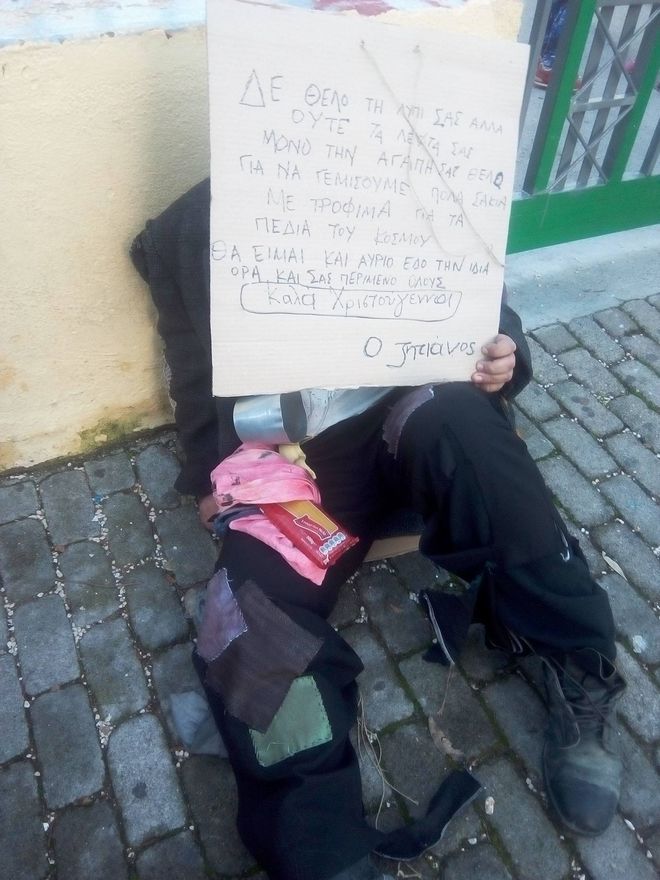 ΔΕ ΘΕΛΟ ΤΗ ΛΥΠΙ ΣΑΣ ΑΛΛΑ
ΟΥΤΕ ΤΑ ΛΕΥΤΑ ΣΑΣ
ΜΟΝΟ ΤΗΝ ΑΓΑΠΗ ΣΑΣ ΘΕΛΟ
ΓΙΑ ΝΑ ΓΕΜΙΣΟΥΜΕ ΠΟΛΑ ΣΑΚΙΑ
ΜΕ ΤΡΟΦΙΜΑ ΓΙΑ ΤΑ
ΠΕΔΙΑ ΤΟΥ ΚΟΣΜΟΥ
ΘΑ ΕΙΜΑΙ ΚΑΙ ΑΥΡΙΟ ΕΔΟ ΤΗΝ ΙΔΙΑ
ΟΡΑ ΚΑΙ ΣΑΣ ΠΕΡΙΜΕΝΟ ΟΛΟΥΣ
Καλα Χριστουγεννα
Ο ζητιάνος